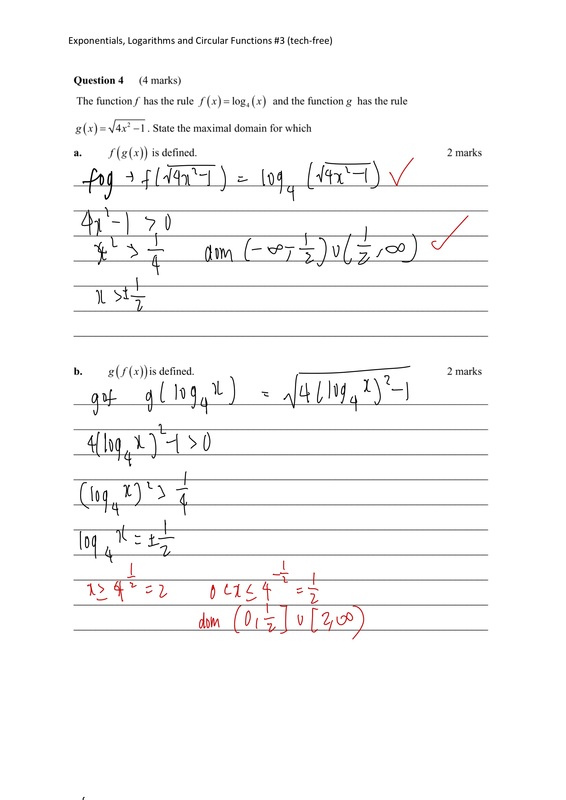 Exponentials, Logarithms and Circular Functions #3 (tech-free)
Question 4 (4 marks)
The function f has the rule f(x) = log₄(x) and the function g has the rule
g(x) = √(4x² − 1). State the maximal domain for which
a. f(g(x)) is defined. 2 marks
fog → f(√(4x²−1)) = log₄(√(4x²−1)) ✓
4x²−1 > 0
x² > 1/4 dom (−∞, −1/2) ∪ (1/2, ∞) ✓
x > ±1/2
b. g(f(x)) is defined. 2 marks
gof g(log₄x) = √(4(log₄x)²−1)
4(log₄x)²−1 > 0
(log₄x)² > 1/4
log₄x = ±1/2
x ≥ 4^(1/2) = 2 0 < x ≤ 4^(−1/2) = 1/2
dom (0, 1/2] ∪ [2, ∞)